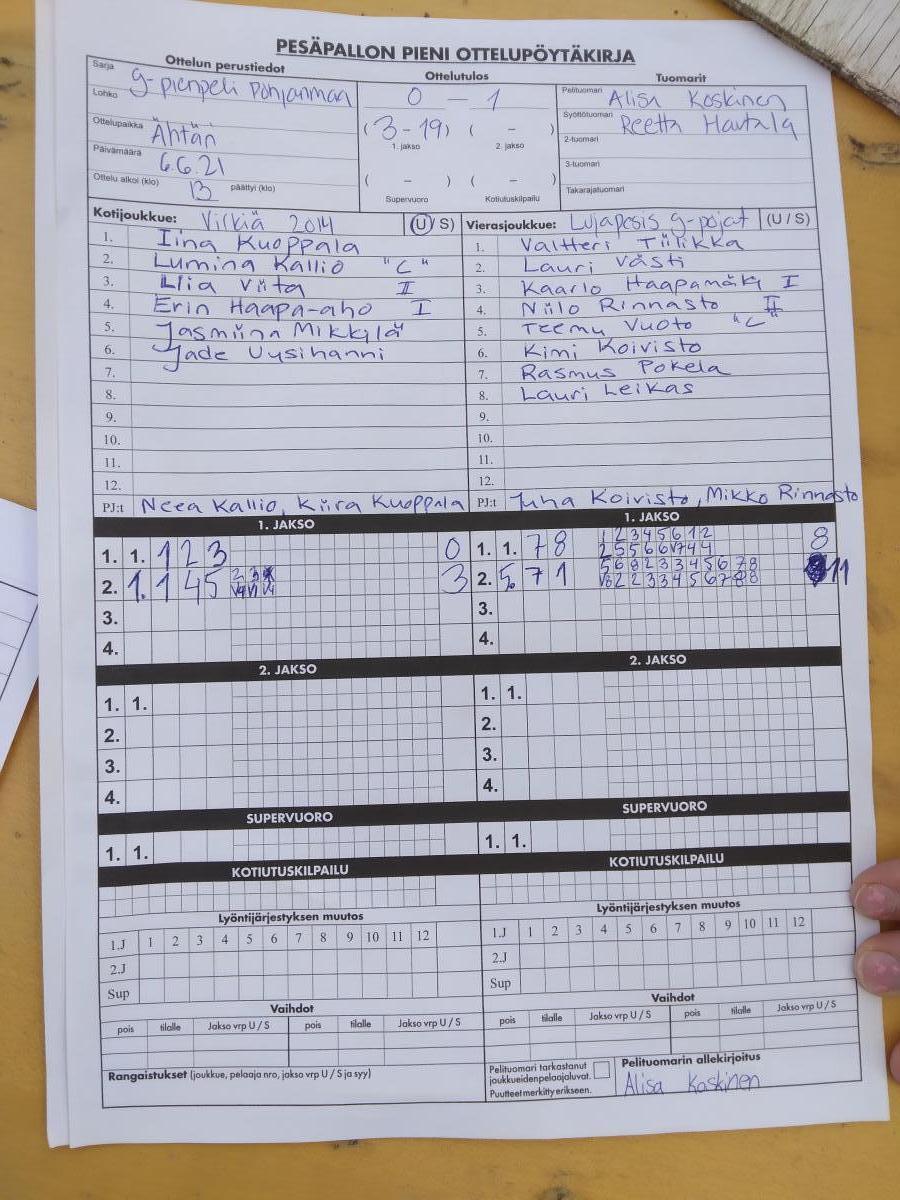 PESÄPALLON PIENI OTTELUPÖYTÄKIRJA
Ottelun perustiedot
Sarja G-pienpeli Pohjanmaa
Lohko
Ottelupaikka Ähtäri
Päivämäärä 6.6.21
Ottelu alkoi (klo) 13 päättyi (klo)
Ottelutulos
0 - 1
(3-19) ( - )
1. jakso 2. jakso
( - ) ( - )
Supervuoro Kotiutuskilpailu
Tuomarit
Pelituomari Alisa Koskinen
Syöttötuomari Reetta Hautala
2-tuomari
3-tuomari
Takarajatuomari
Kotijoukkue: Virkiä 2014 (U/S)
1. Iina Kuoppala
2. Lumina Kallio "C"
3. Llia Viita II
4. Erin Haapa-aho I
5. Jasmiina Mikkilä
6. Jade Uusihanni
7.
8.
9.
10.
11.
12.
PJ:t Neea Kallio, Kiira Kuoppala
Vierasjoukkue: Lujapesis g-pojat (U/S)
1. Valtteri Tiilikka
2. Lauri Västi
3. Kaarlo Haapamäki I
4. Niilo Rinnasto II
5. Teemu Vuoto "C"
6. Kimi Koivisto
7. Rasmus Pokela
8. Lauri Leikas
9.
10.
11.
12.
PJ:t Juha Koivisto, Mikko Rinnasto
1. JAKSO
1. 1. 1 2 3 0
2. 1. 1 4 5 3
3.
4.
2. JAKSO
1. 1.
2.
3.
4.
SUPERVUORO
1. 1.
KOTIUTUSKILPAILU
Lyöntijärjestyksen muutos
1.J 1 2 3 4 5 6 7 8 9 10 11 12
2.J
Sup
Vaihdot
pois tilalle Jakso vrp U / S pois tilalle Jakso vrp U / S
Rangaistukset (joukkue, pelaaja nro, jakso vrp U / S ja syy)
1. JAKSO
1 2 3 4 5 6 1 2
1. 1. 7 8 8
5 6 8 2 3 3 4 5 6 7 8
2. 5. 7 1 11
3.
4.
2. JAKSO
1. 1.
2.
3.
4.
SUPERVUORO
1. 1.
KOTIUTUSKILPAILU
Lyöntijärjestyksen muutos
1.J 1 2 3 4 5 6 7 8 9 10 11 12
2.J
Sup
Vaihdot
pois tilalle Jakso vrp U / S pois tilalle Jakso vrp U / S
Pelituomari tarkastanut
joukkueiden pelaajaluvat.
Puutteet merkitty erikseen.
Pelituomarin allekirjoitus
Alisa Koskinen